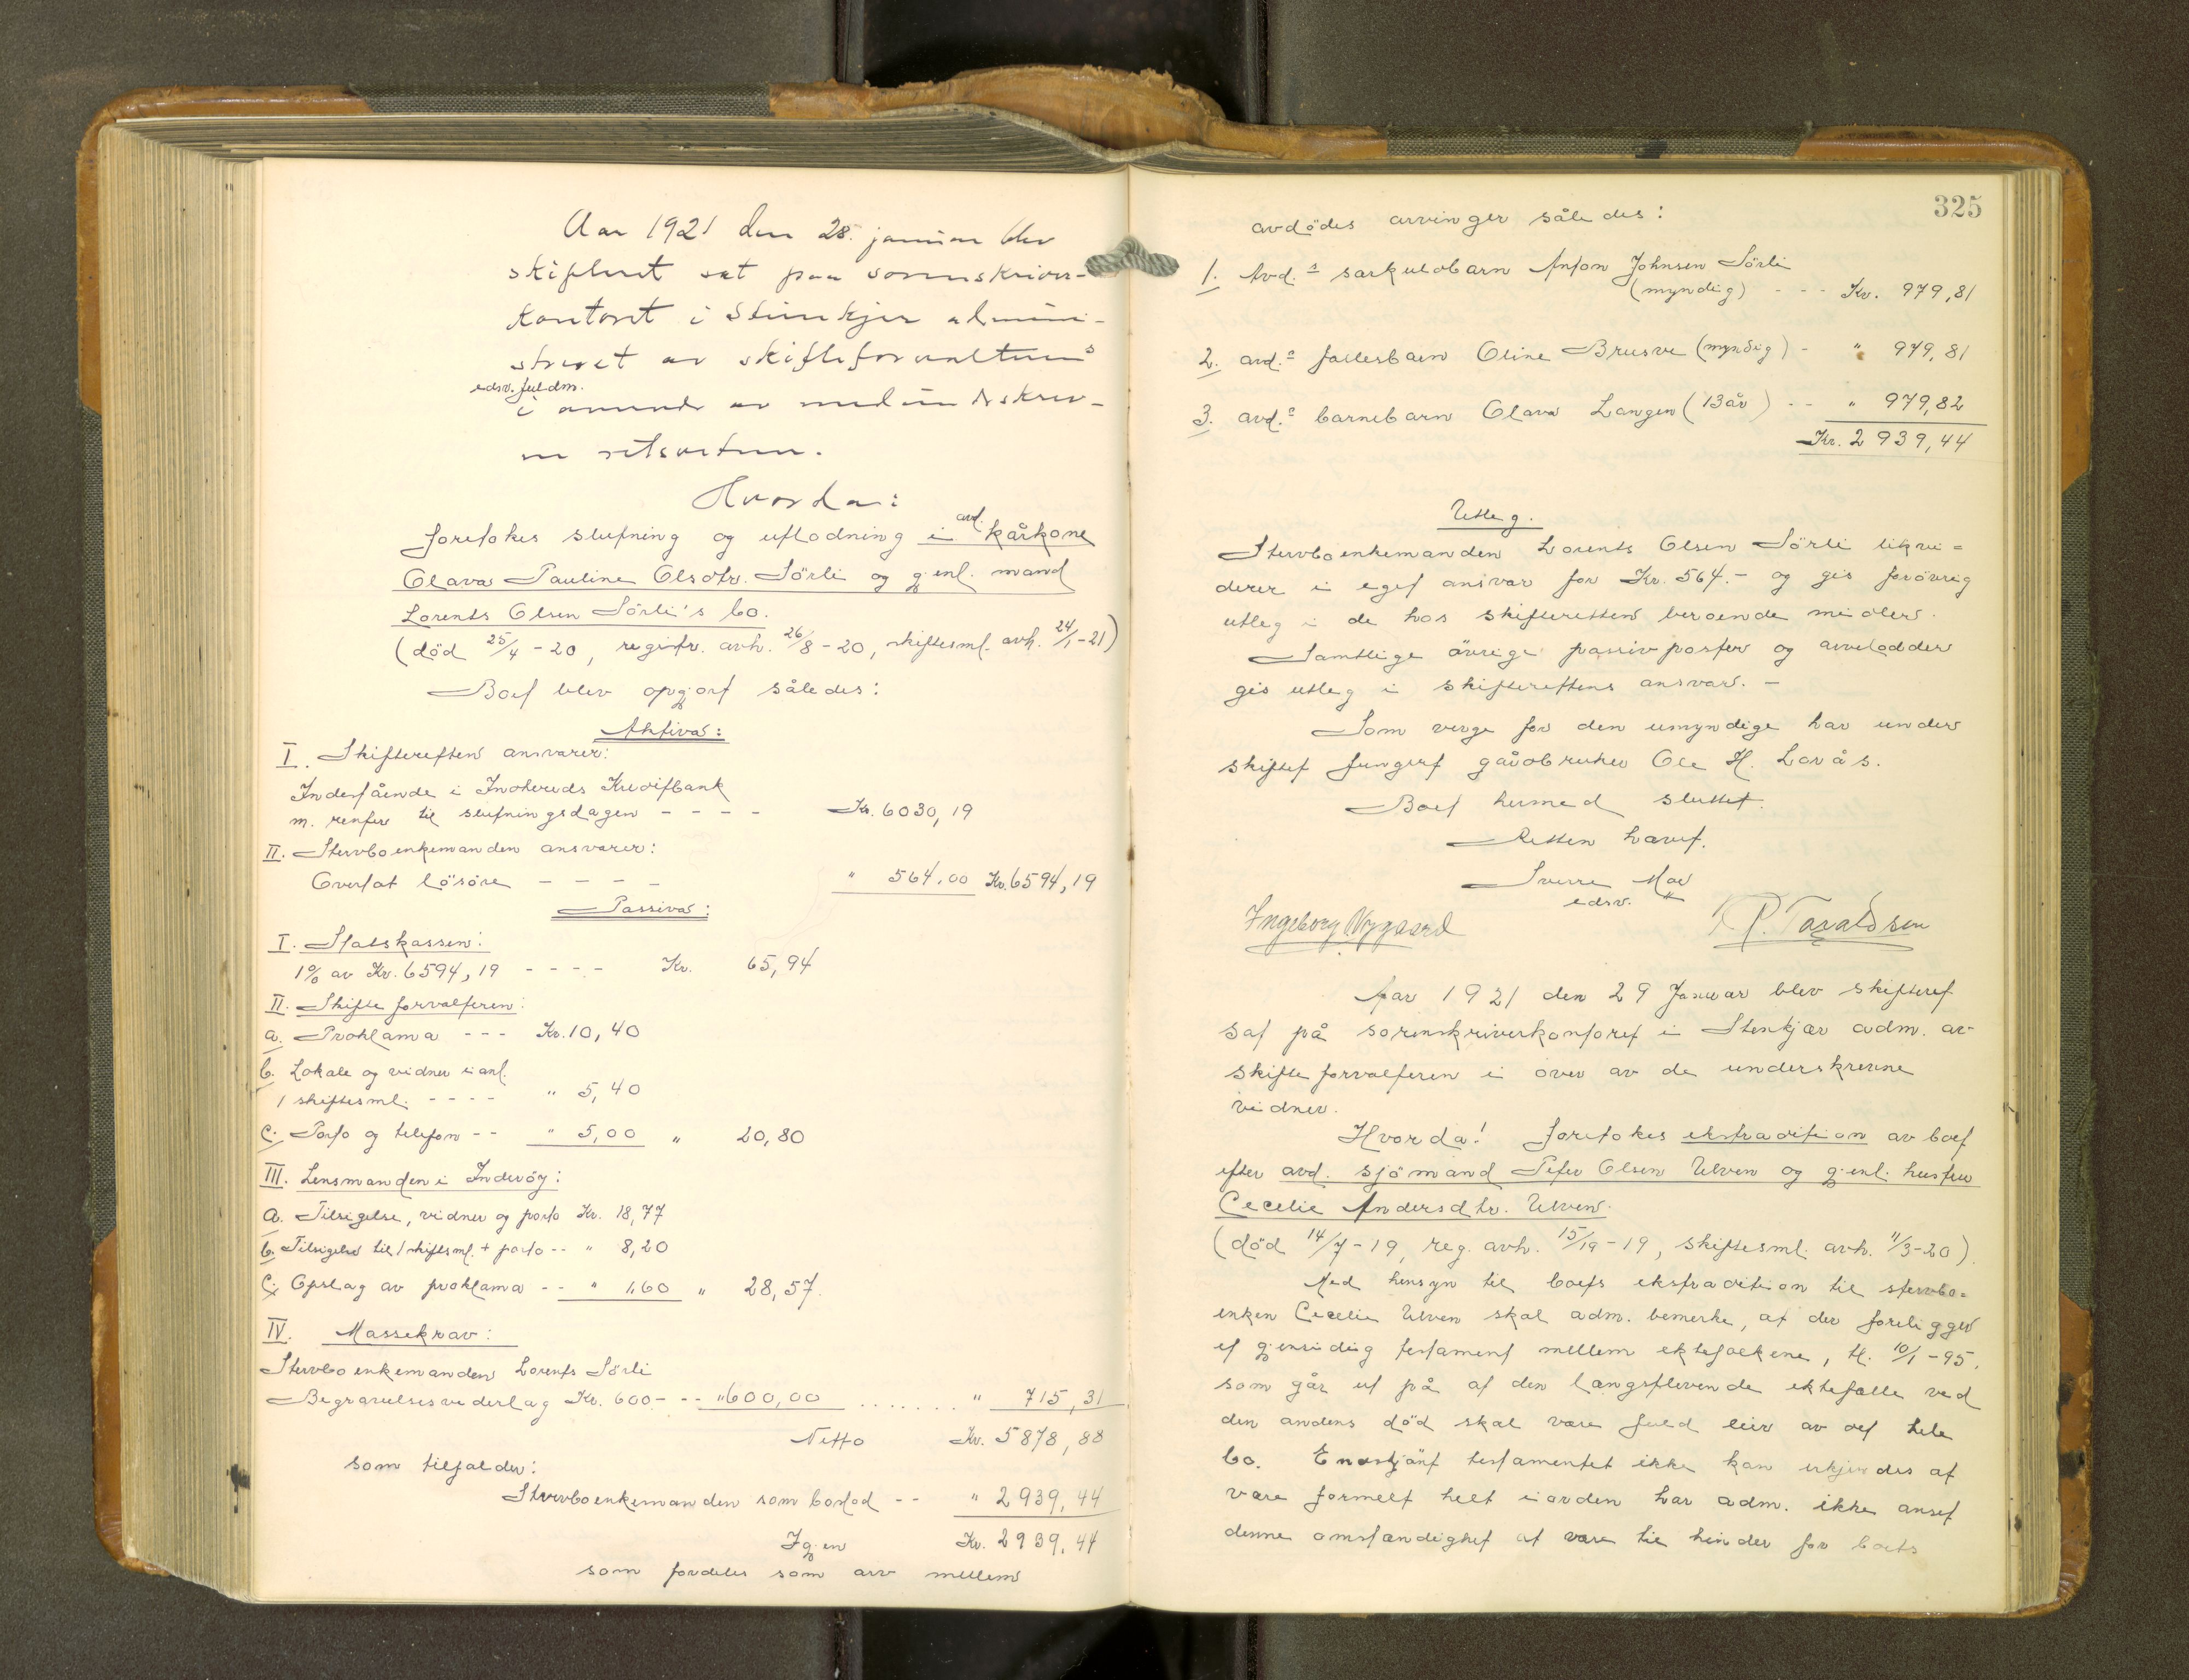 Aar 1921 den 28. januar blev
skifteret sat paa sorenskriver-
kontoret i Steinkjer admini-
streret av skifteforvalterens
edsv. fuldm.
i overvær av medunderskrev-
ne retsvidner.
Hvorda:
foretokes slutning og utlodning i avd. kårkone
Olava Pauline Olsdtr. Sörli og gjenl. mand
Lorents Olsen Sörli's bo.
(död 25/4 - 20, registr. avh. 26/8 - 20, skiftesml. avh. 24/1 - 21)
Boet blev opgjort således:
Aktiva:
I. Skifteretten ansvarer:
Indestående i Inderöens Kreditbank
m. renter til slutningsdagen - - - - Kr. 6030,19
II. Stervboenkemanden ansvarer:
Overtat lösöre - - - - " 564.00 Kr. 6594,19
Passiva:
I. Statskassen:
1% av Kr. 6594,19 - - - - Kr. 65,94
II. Skifteforvalteren:
a. Proklama - - - Kr. 10,40
b. Lokale og vidner i anl.
1 skiftesml. - - - - " 5,40
c. Porto og telefon - - " 5,00 " 20,80
III. Lensmanden i Inderöy:
a. Tilsigelse, vidner og porto Kr. 18,77
b. Tilsigelse til 1 skiftesml. + porto - - " 8,20
c. Opslag av proklama - - " 1,60 " 28,57
IV. Massekrav:
Stervboenkemanden Lorents Sörli
Begravelsesvederlag Kr. 600 - - - " 600,00 ....... " 715,31
Netto Kr. 5878,88
som tilfalder:
Stervboenkemanden som boslod - - " 2939,44
Igjen Kr. 2939,44
som fordeles som arv mellem
325
avdödes arvinger således:
1. Avd.s særkuldbarn Anton Johnsen Sörli
(myndig) - - - Kr. 979,81
2. avd.s fællesbarn Oline Brusve (myndig) - " 979,81
3. avd.s barnebarn Olava Langen (13 år) - - " 979,82
Kr. 2939,44
Utleg.
Stervboenkemanden Lorents Olsen Sörli likvi=
derer i eget ansvar for Kr. 564.- og gis forövrig
utleg i de hos skifteretten beroende midler.
Samtlige övrige passivposter og arvelodder
gis utleg i skifterettens ansvar. -
Som verge for den umyndige har under
skiftet fungert gårdbruker Ole H. Lorås.
Boet hermed sluttet.
Retten hævet.
Sverre Moe
edsv.
Ingeborg Nygaard K P. Tavaldsen
Aar 1921 den 29 Januar blev skifteret
sat på sorenskriverkontoret i Stenkjær adm. av
skifteforvalteren i over av de underskrevne
vidner.
Hvorda! foretokes ekstradition av boet
efter avd. sjömand Peter Olsen Ulven og gjenl. hustru
Cecelie Andersdtr. Ulven.
(död 14/7 - 19, reg. avh. 15/19 - 19, skiftesml. avh. 11/3 - 20).
Med hensyn til boets ekstradition til stervbo=
enken Cecelie Ulven skal adm. bemerke, at der foreligger
et gjensidig testament mellem ektefolkene, tl. 10/1 - 95,
som går ut på at den længstlevende ektefælle ved
den andens död skal være fuld eier av det hele
bo. Endskjönt testamentet ikke kan erkjendes at
være formelt helt i orden har adm. ikke anset
denne omstændighet at være til hinder for boets